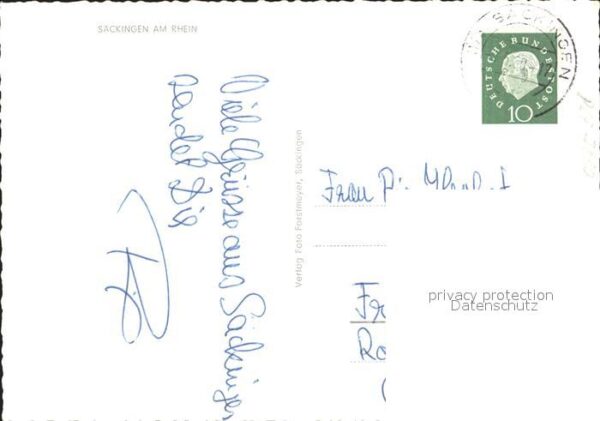 SÄCKINGEN AM RHEIN
Viele Grüsse aus Säckingen
sendet Dir
Verlag Foto Forstmeyer, Säckingen
SÄCKINGEN
DEUTSCHE BUNDESPOST
10
Frau
Fr
Ro
privacy protection
Datenschutz